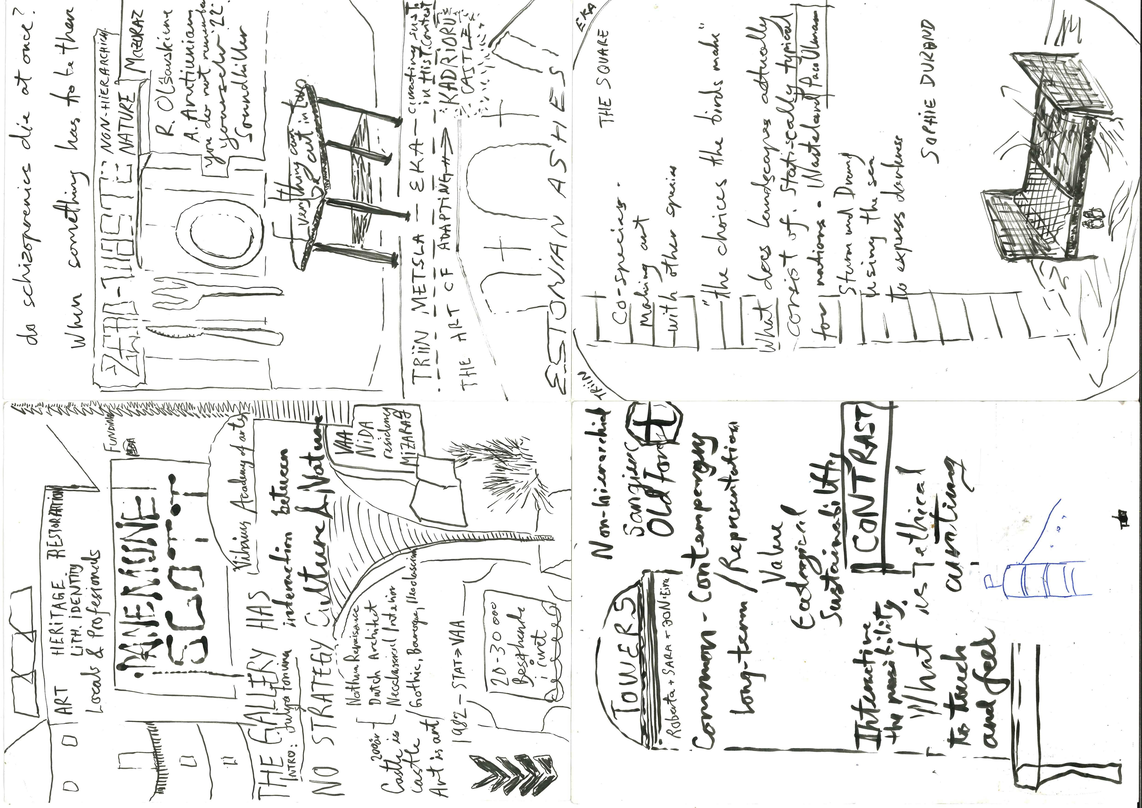 do schizoporenics die at once?
When something has to be there
ZERO-WASTE
NON-HIERARCHICAL
NATURE
MIZARAZ
R. Olšauskienė
A. Arutiunian
you do not remember
yourselv '22
Soundkiller
Everything can
be cut in two
TRIIN METSLA — EKA — curating just
in Hist. Context
THE ART OF ADAPTING → KADRIORU
CASTLE
ESTONIAN ASHES
EKA
THE SQUARE
Co-species -
making art
with other species
"the choices the birds make"
What does landscapes actually
consist of. Statically typical
for nations - Wasteland, Paco Ulman
Sturm und Drang
using the sea
to express darkness
SOPHIE DURAND
ART HERITAGE RESTORATION
LITH. IDENTITY
Locals & Professionals
FUNDING
PANEMUNE
Vilnius Academy of arts
THE GALLERY HAS
INTRO:
interaction between
NO STRATEGY Culture & Nature
VAA
NiDA
residency
MIZARAS
Northern Renaissance
Dutch Architect
Neoclassical Interior
Gothic, Baroque, Neoclassicism
Castle is
castle
Art is art
1982 - STAT → VAA
20-30 000
TOWERS
Roberta + SARA + JON-Eirik
Non-hierarchical
Old Fort
Common - Contemporary
Long-term / Representation
Value
Ecological
Sustainability
CONTRAST
Interactive
the possibility
What is ethical
to touch curating
and feel